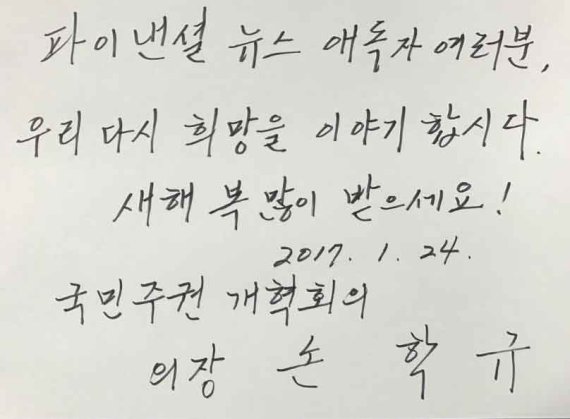 파이낸셜 뉴스 애독자 여러분,
우리 다시 희망을 이야기 합시다.
새해 복 많이 받으세요!
2017. 1. 24.
국민주권 개혁회의
의장 손 학 규